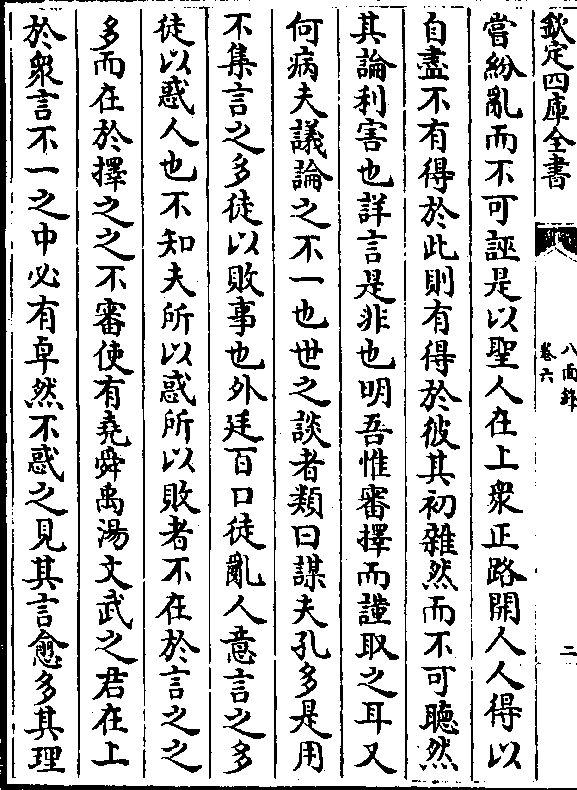 欽定四庫全書
八面鋒
卷六
二
嘗紛亂而不可誣是以聖人在上衆正路開人人得以
自盡不有得於此則有得於彼其初雜然而不可聽然
其論利害也詳言是非也明吾惟審擇而謹取之耳又
何病夫議論之不一也世之談者類曰謀夫孔多是用
不集言之多徒以敗事也外廷百口徒亂人意言之多
徒以惑人也不知夫所以惑所以敗者不在於言之之
多而在於擇之之不審使有堯舜禹湯文武之君在上
於衆言不一之中必有卓然不惑之見其言愈多其理